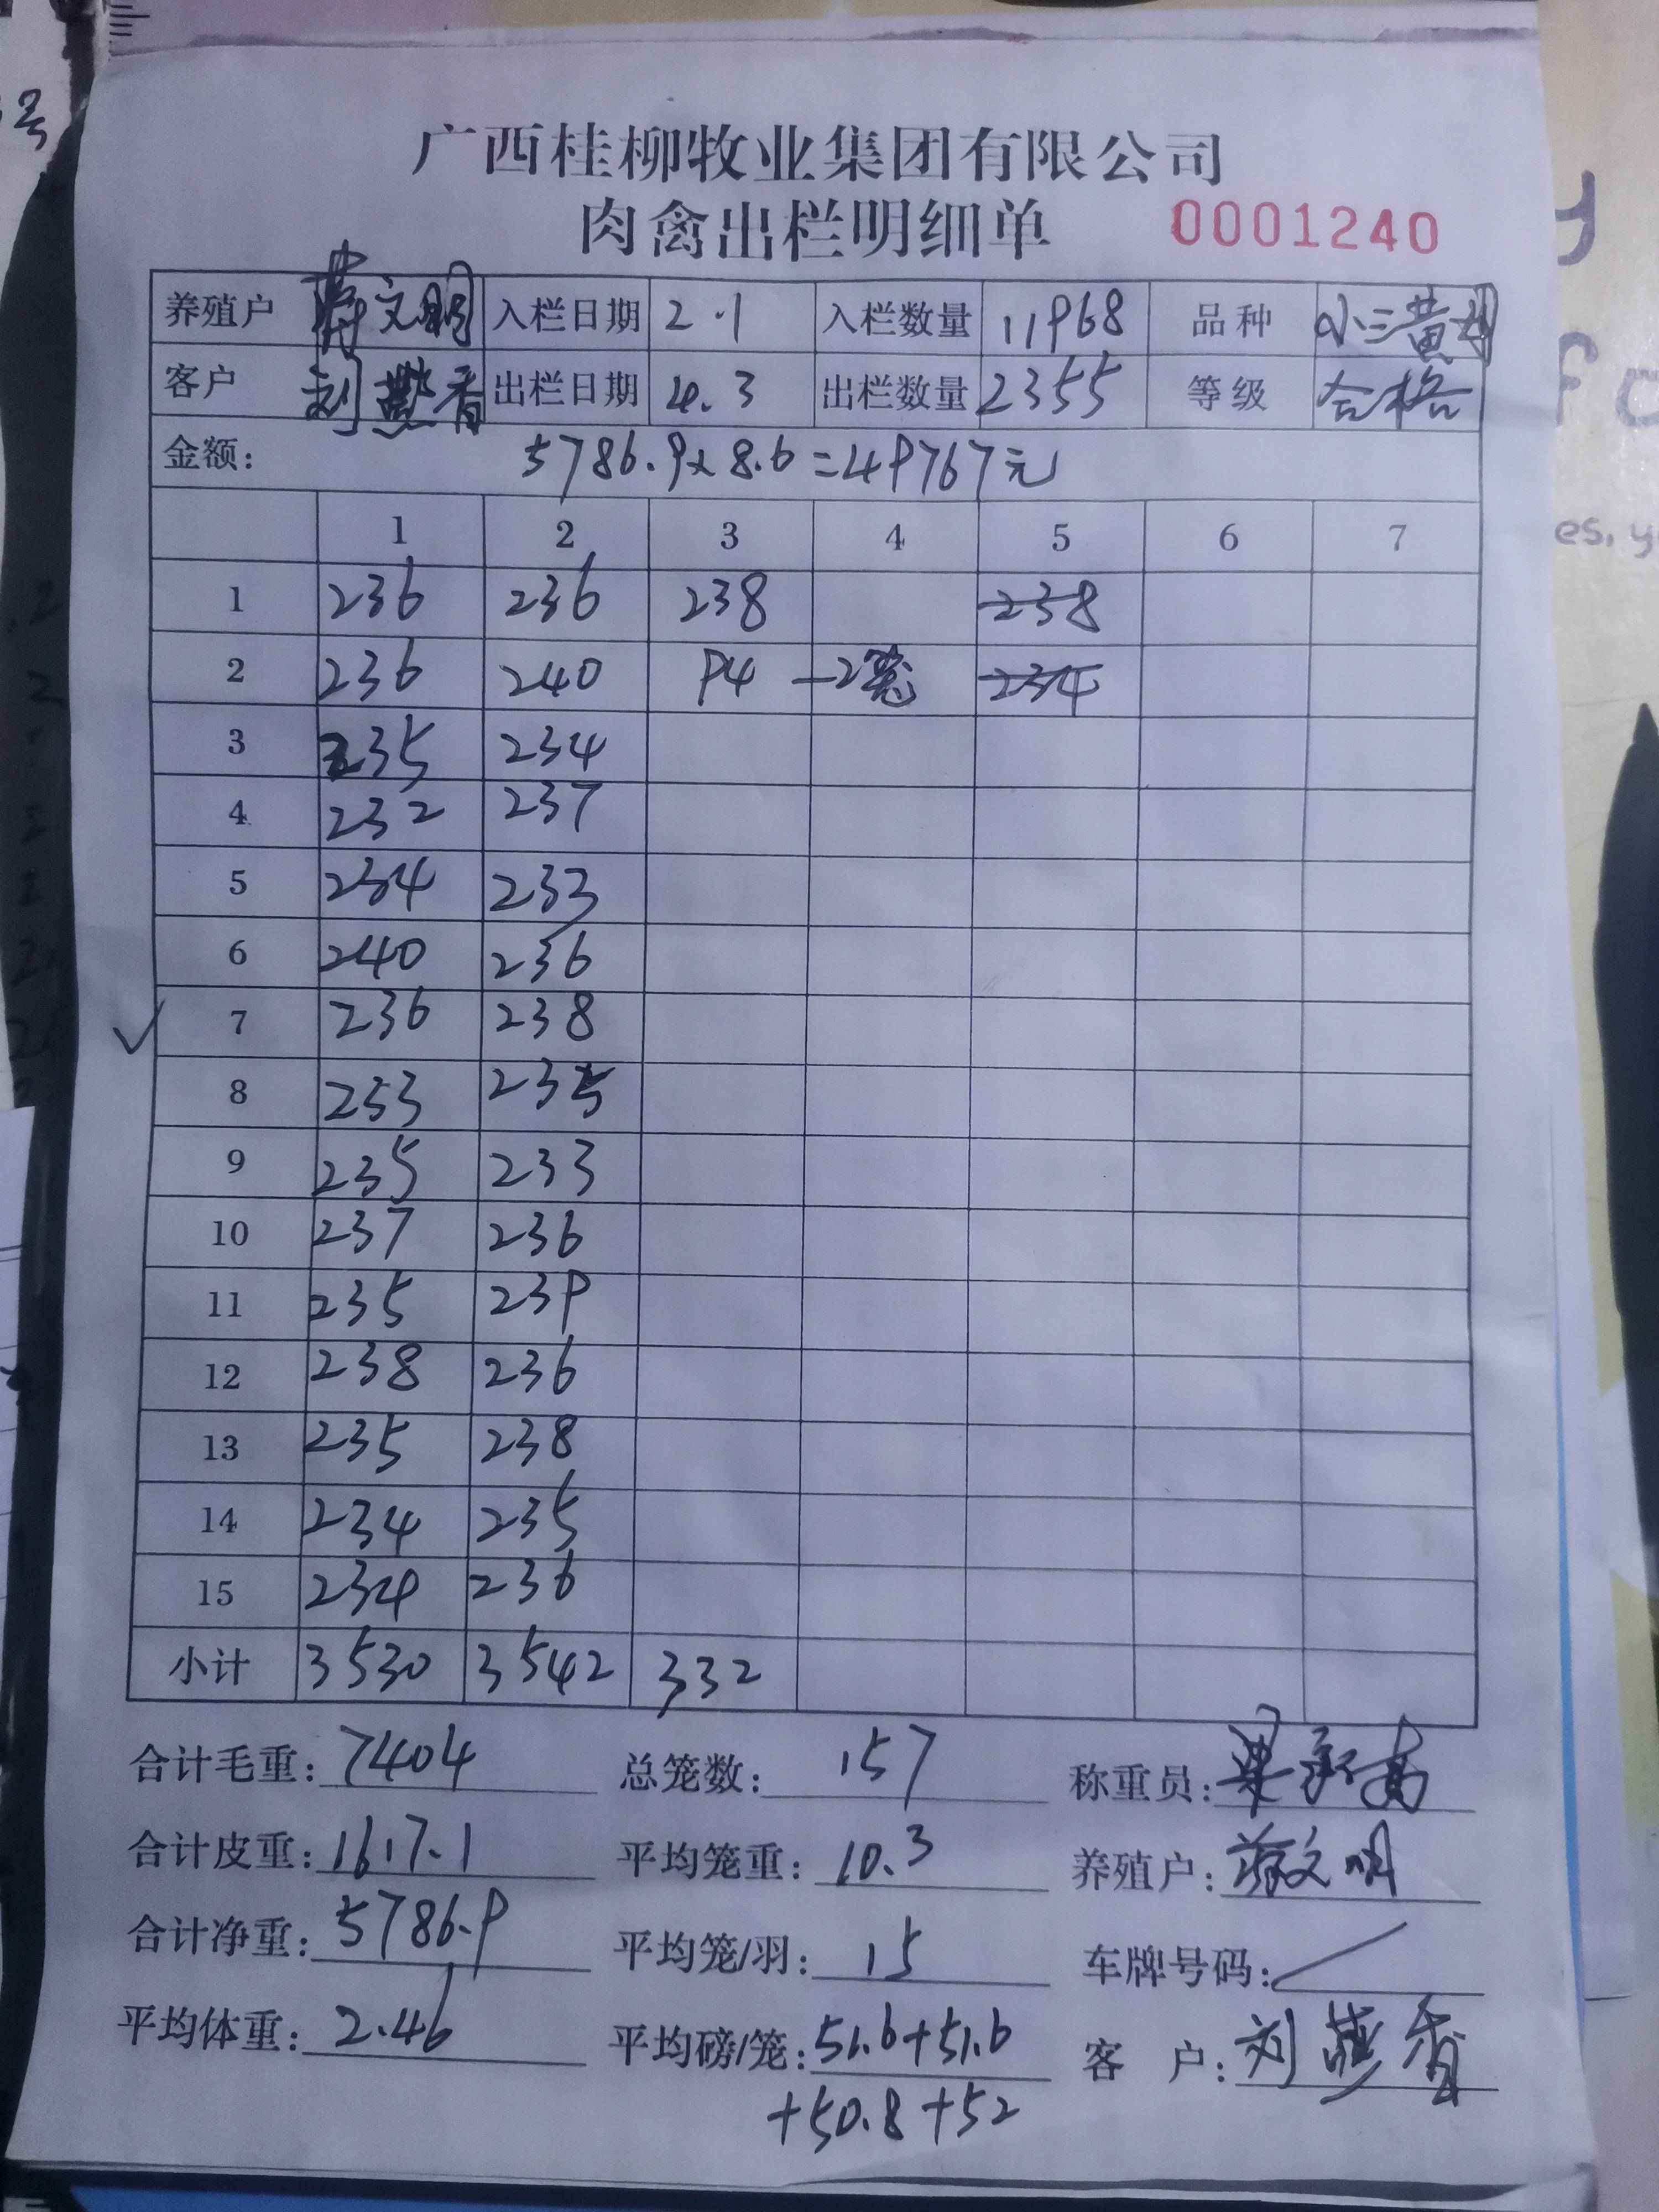 广西桂柳牧业集团有限公司
肉禽出栏明细单 0001240
养殖户 蒋文明 入栏日期 2.1 入栏数量 11968 品种 小三黄
客户 刘燕香 出栏日期 4.3 出栏数量 2355 等级 合格
金额: 5786.9x8.6=49767元
1 2 3 4 5 6 7
1 236 236 238 238
2 236 240 94 -2笼 234
3 235 234
4 232 237
5 234 233
6 240 236
7 236 238
8 233 235
9 235 233
10 237 236
11 235 239
12 238 236
13 235 238
14 234 235
15 234 236
小计 3530 3542 332
合计毛重: 7404 总笼数: 157 称重员:
合计皮重: 1617.1 平均笼重: 10.3 养殖户: 蒋文明
合计净重: 5786.9 平均笼/羽: 15 车牌号码: /
平均体重: 2.46 平均磅/笼: 51.6+51.6 客 户: 刘燕香
+50.8+52